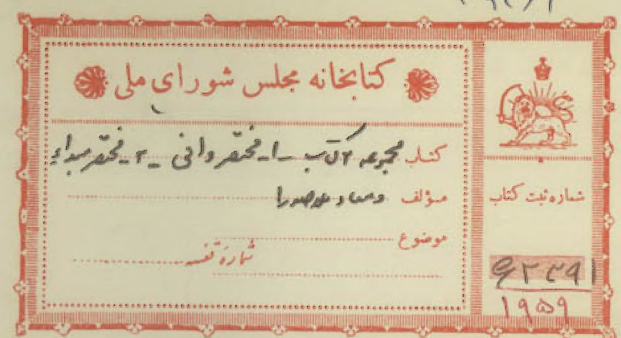 کتابخانه مجلس شورای ملی
کتاب مجموعه ۲ کتاب - ۱- مختصر وافی - ۲- مختصر مبداء
مؤلف ومعاد ملاصدرا
موضوع
شماره قفسه
شماره ثبت کتاب
۶۲۳۹۱
۱۹۵۹